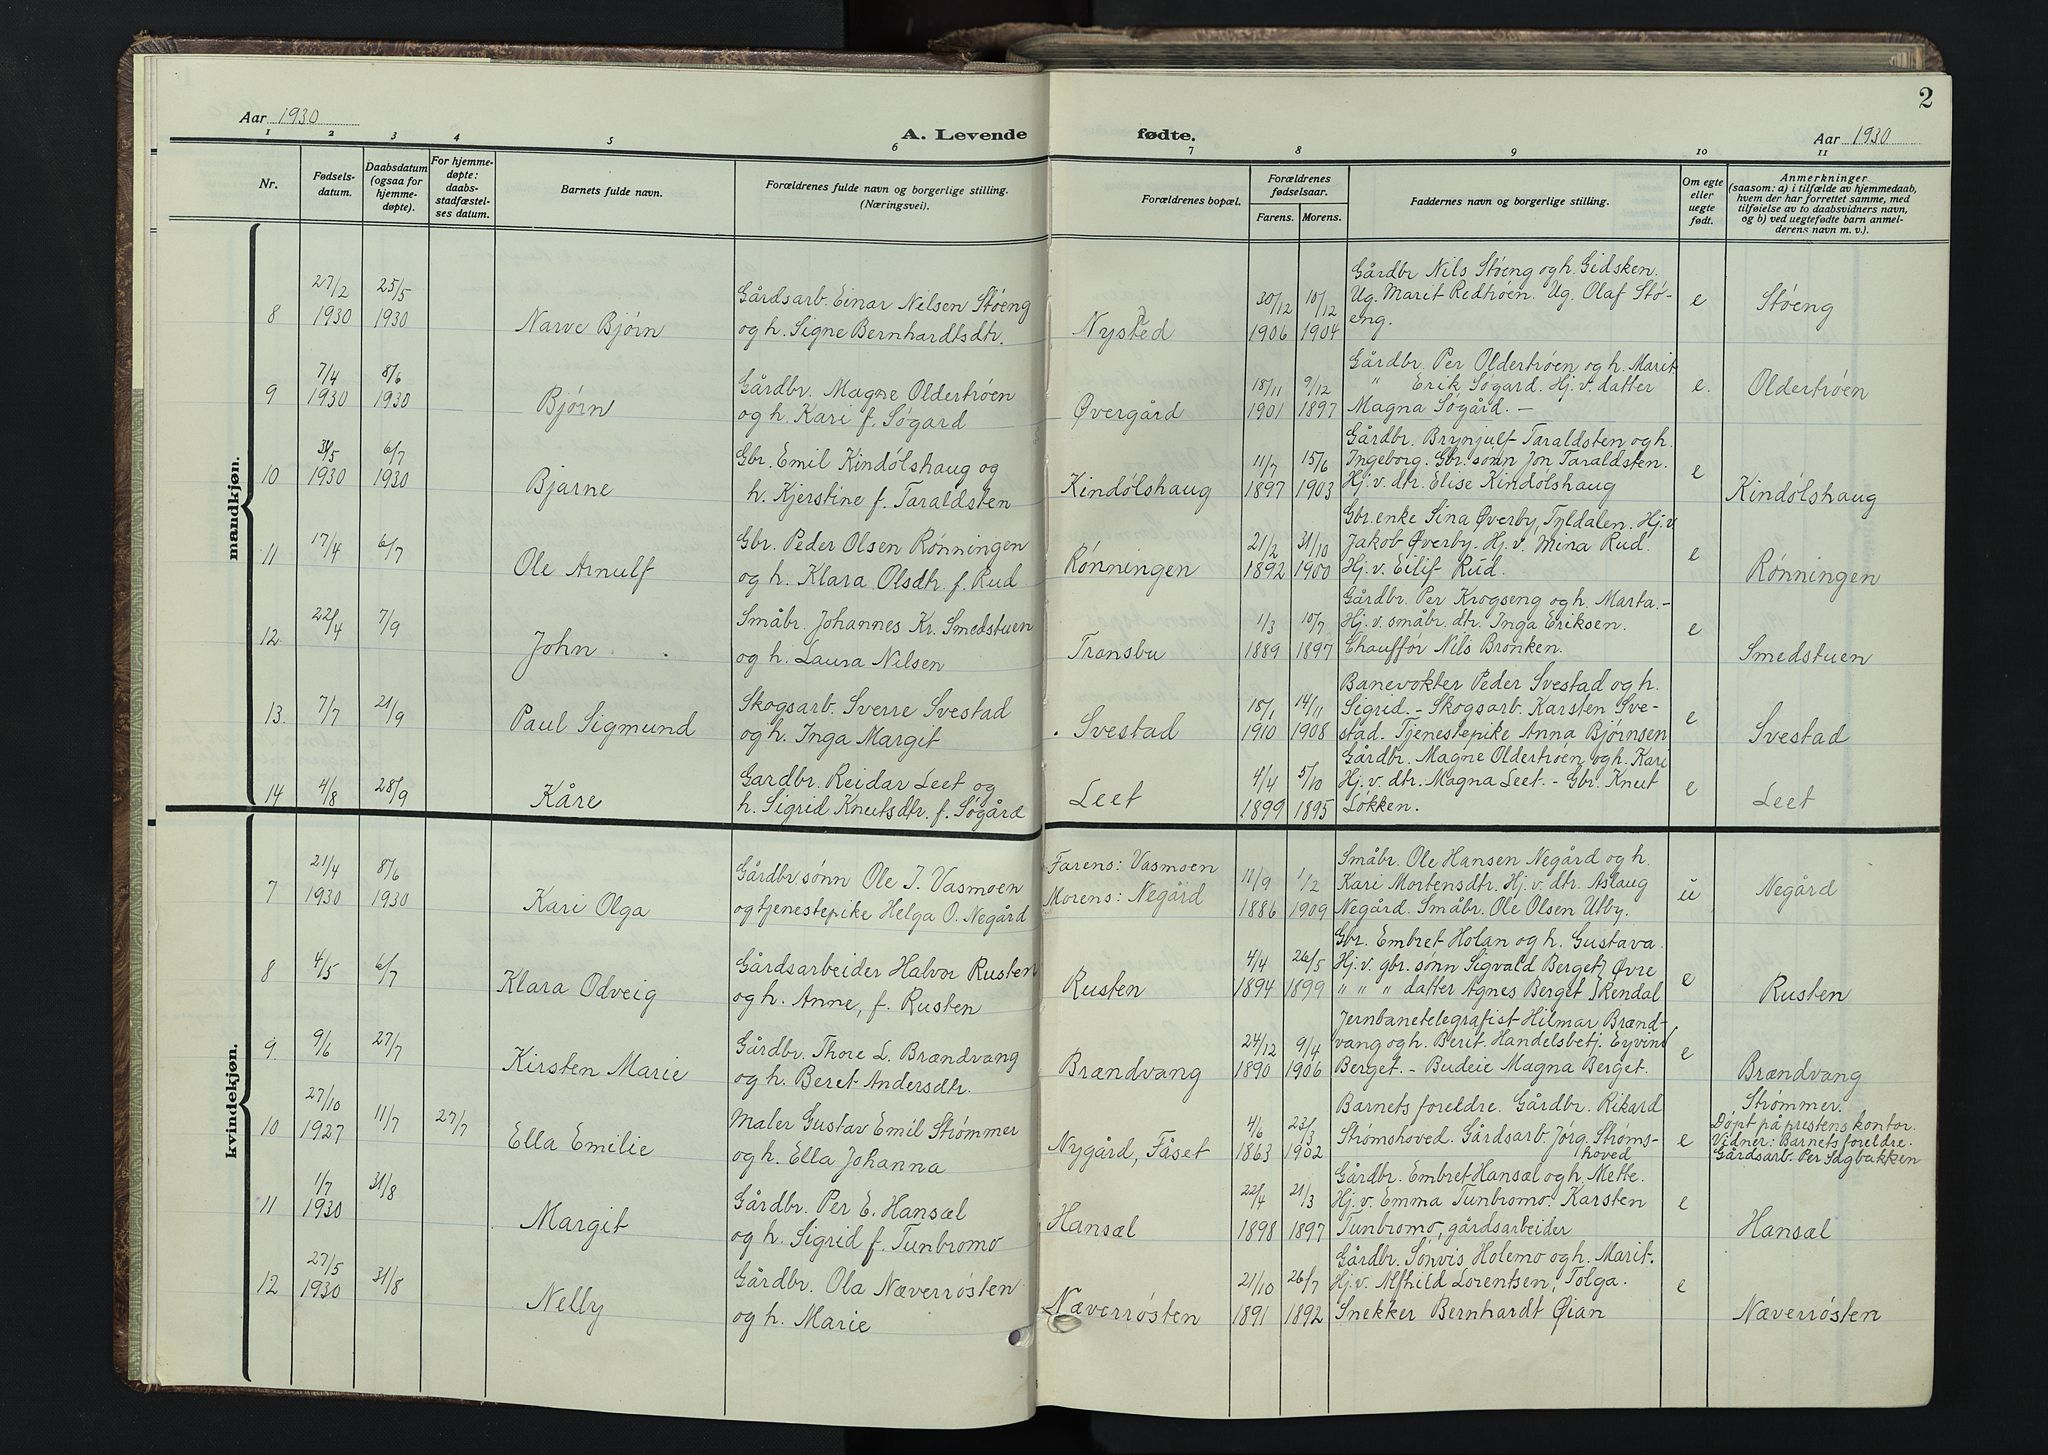 2
Aar 1930
A. Levende fødte.
Aar 1930
1 2 3 4 5 6 7 8 9 10 11
Nr.
Fødsels-
datum.
Daabsdatum
(ogsaa for
hjemme-
døpte).
For hjemme-
døpte:
daabs-
stadfæstel-
ses datum.
Barnets fulde navn.
Forældrenes fulde navn og borgerlige stilling.
(Næringsvei).
Forældrenes bopæl.
Forældrenes
fødselsaar.
Farens. Morens.
Faddernes navn og borgerlige stilling.
Om egte
eller
uegte
født.
Anmerkninger
(saasom: a) i tilfælde av hjemmedaab,
hvem der har forrettet samme, med
tilføielse av to daabsvidners navn,
og b) ved uegtefødte barn anmel-
derens navn m. v.).
mandkjøn.
8
27/2
1930
25/5
1930
Narve Bjørn
Gårdsarb. Einar Nilsen Støeng
og h. Signe Bernhardtsdtr.
Nysted
30/12
1906
10/12
1904
Gårdbr Nils Støeng og h. Gidsken.
Ug. Marit Redtrøen. Ug. Olaf Stø-
eng.
e
Støeng
9
7/4
1930
8/6
1930
Bjørn
Gårdbr. Magne Oldertrøen
og h. Kari f. Søgard
Øvergård
18/11
1901
9/12
1897
Gårdbr. Per Oldertrøen og h. Marit
" Erik Søgard. Hj. v. datter
Magna Søgård. —
e.
Oldertrøen
10
31/5
1930
6/7
1930
Bjarne
Gbr. Emil Kindølshaug og
h. Kjerstine f. Taraldsten
Kindølshaug
11/7
1897
15/6
1903
Gårdbr. Brynjulf Taraldsten og h.
Ingeborg. Gbr. sønn Jon Taraldsten.
Hj. v. dtr. Elise Kindølshaug
e
Kindølshaug
11
17/4
6/7
Ole Arnulf
Gbr. Peder Olsen Rønningen
og h. Klara Olsdtr. f. Rud
Rønningen
21/2
1892
31/10
1900
Gbr. enke Sina Øverby, Tyldalen. Hj. v.
Jakob Øverby. Hj. v. Mina Rud.
Hj. v. Eilif Rud.
e
Rønningen
12.
22/4
7/9
John
Småbr. Johannes Kr. Smedstuen
og h. Laura Nilsen
Transbu
1/3
1889
10/7
1897
Gårdbr. Per Krogseng og h. Marta. —
Hj. v. småbr. dtr. Inga Eriksen.
Chauffør Nils Bronken.
e
Smedstuen
13.
7/7
21/9
Paul Sigmund
Skogsarb. Sverre Svestad
og h. Inga Margit
Svestad
18/1
1910
14/11
1908
Banevokter Peder Svestad og h.
Sigrid. — Skogsarb. Karsten Sve-
stad. Tjenestepike Anna Bjørnsen
e
Svestad
14
4/8
28/9
Kåre
Gardbr. Reidar Leet og
h. Sigrid Knutsdtr. f. Søgård
Leet
4/4
1899
5/10
1895
Gårdbr. Magne Oldertrøen og h. Kari
Hj. v. dtr. Magna Leet. — Gbr. Knut
Løkken.
e
Leet
kvindekjøn.
7
21/4
1930
8/6
1930
Kari Olga
Gårdbr sønn Ole J. Vasmoen
og tjenestepike Helga O. Negård
Farens: Vasmoen
Morens: Negård
11/9
1886
1/2
1909
Småbr. Ole Hansen Negård og h.
Kari Mortensdtr. Hj. v. dtr. Aslaug
Negård. Småbr. Ole Olsen Utby.
u
Negård
8
4/5
6/7
Klara Odveig
Gårdsarbeider Halvor Rusten
og h. Anne, f. Rusten
Rusten
4/4
1894
26/5
1899
Gbr. Embret Holan og h. Gustava.
Hj. v. gbr. sønn Sigvald Berget } Øvre
" " " datter Agnes Berget } Rendal
e
Rusten
9
9/6
27/7
Kirsten Marie
Gårdbr. Thore L. Brændvang
og h. Beret Andersdtr.
Brændvang
24/12
1890
9/4
1906
Jernbanetelegrafist Hilmar Brænd-
vang og h. Berit. Handelsbetj. Eyvind
Berget. — Budeie Magna Berget.
e
Brændvang
10
27/10
1927
11/7
27/7
Ella Emilie
Maler Gustav Emil Strømmer
og h. Ella Johanna
Nygård, Fåset
4/6
1863
23/3
1902
Barnets foreldre. Gårdbr. Rikard
Strømshoved. Gårdsarb. Jørg. Strøms-
hoved
e
Strømmer.
Døpt på prestens kontor.
Vidner: Barnets foreldre.
Gårdsarb. Per Sagbakken
11
1/7
1930
31/8
Margit
Gårdbr. Per E. Hansæl
og h. Sigrid f. Tunbromo
Hansæl
22/4
1898
21/3
1897
Gårdbr. Embret Hansæl og h. Mette.
Hj. v. Emma Tunbromo. Karsten
Tunbromo, gårdsarbeider
e
Hansæl
12
27/5
1930
31/8
Nelly
Gårdbr. Ola Næverrøsten
og h. Marie
Næverrøsten
21/10
1891
26/7
1892
Gårdbr. Sønvis Holemo og h. Marit.
Hj. v. Alfhild Lorentsen, Tolga.
Snekker Bernhardt Øian
e
Næverrøsten